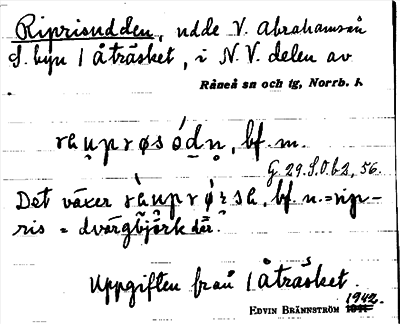 Riprisudden, udde V. Abrahamsån
S. byn 1 åträsket, i N.V. delen av
Råneå sn och tg, Norrb. l.
bf. m.
G. 29. S.O. b 2, 56.
Det växer bf. n. = rip-
ris = dvärgbjörk där.
Uppgiften från 1 åträsket.
1942.
EDVIN BRÄNNSTRÖM